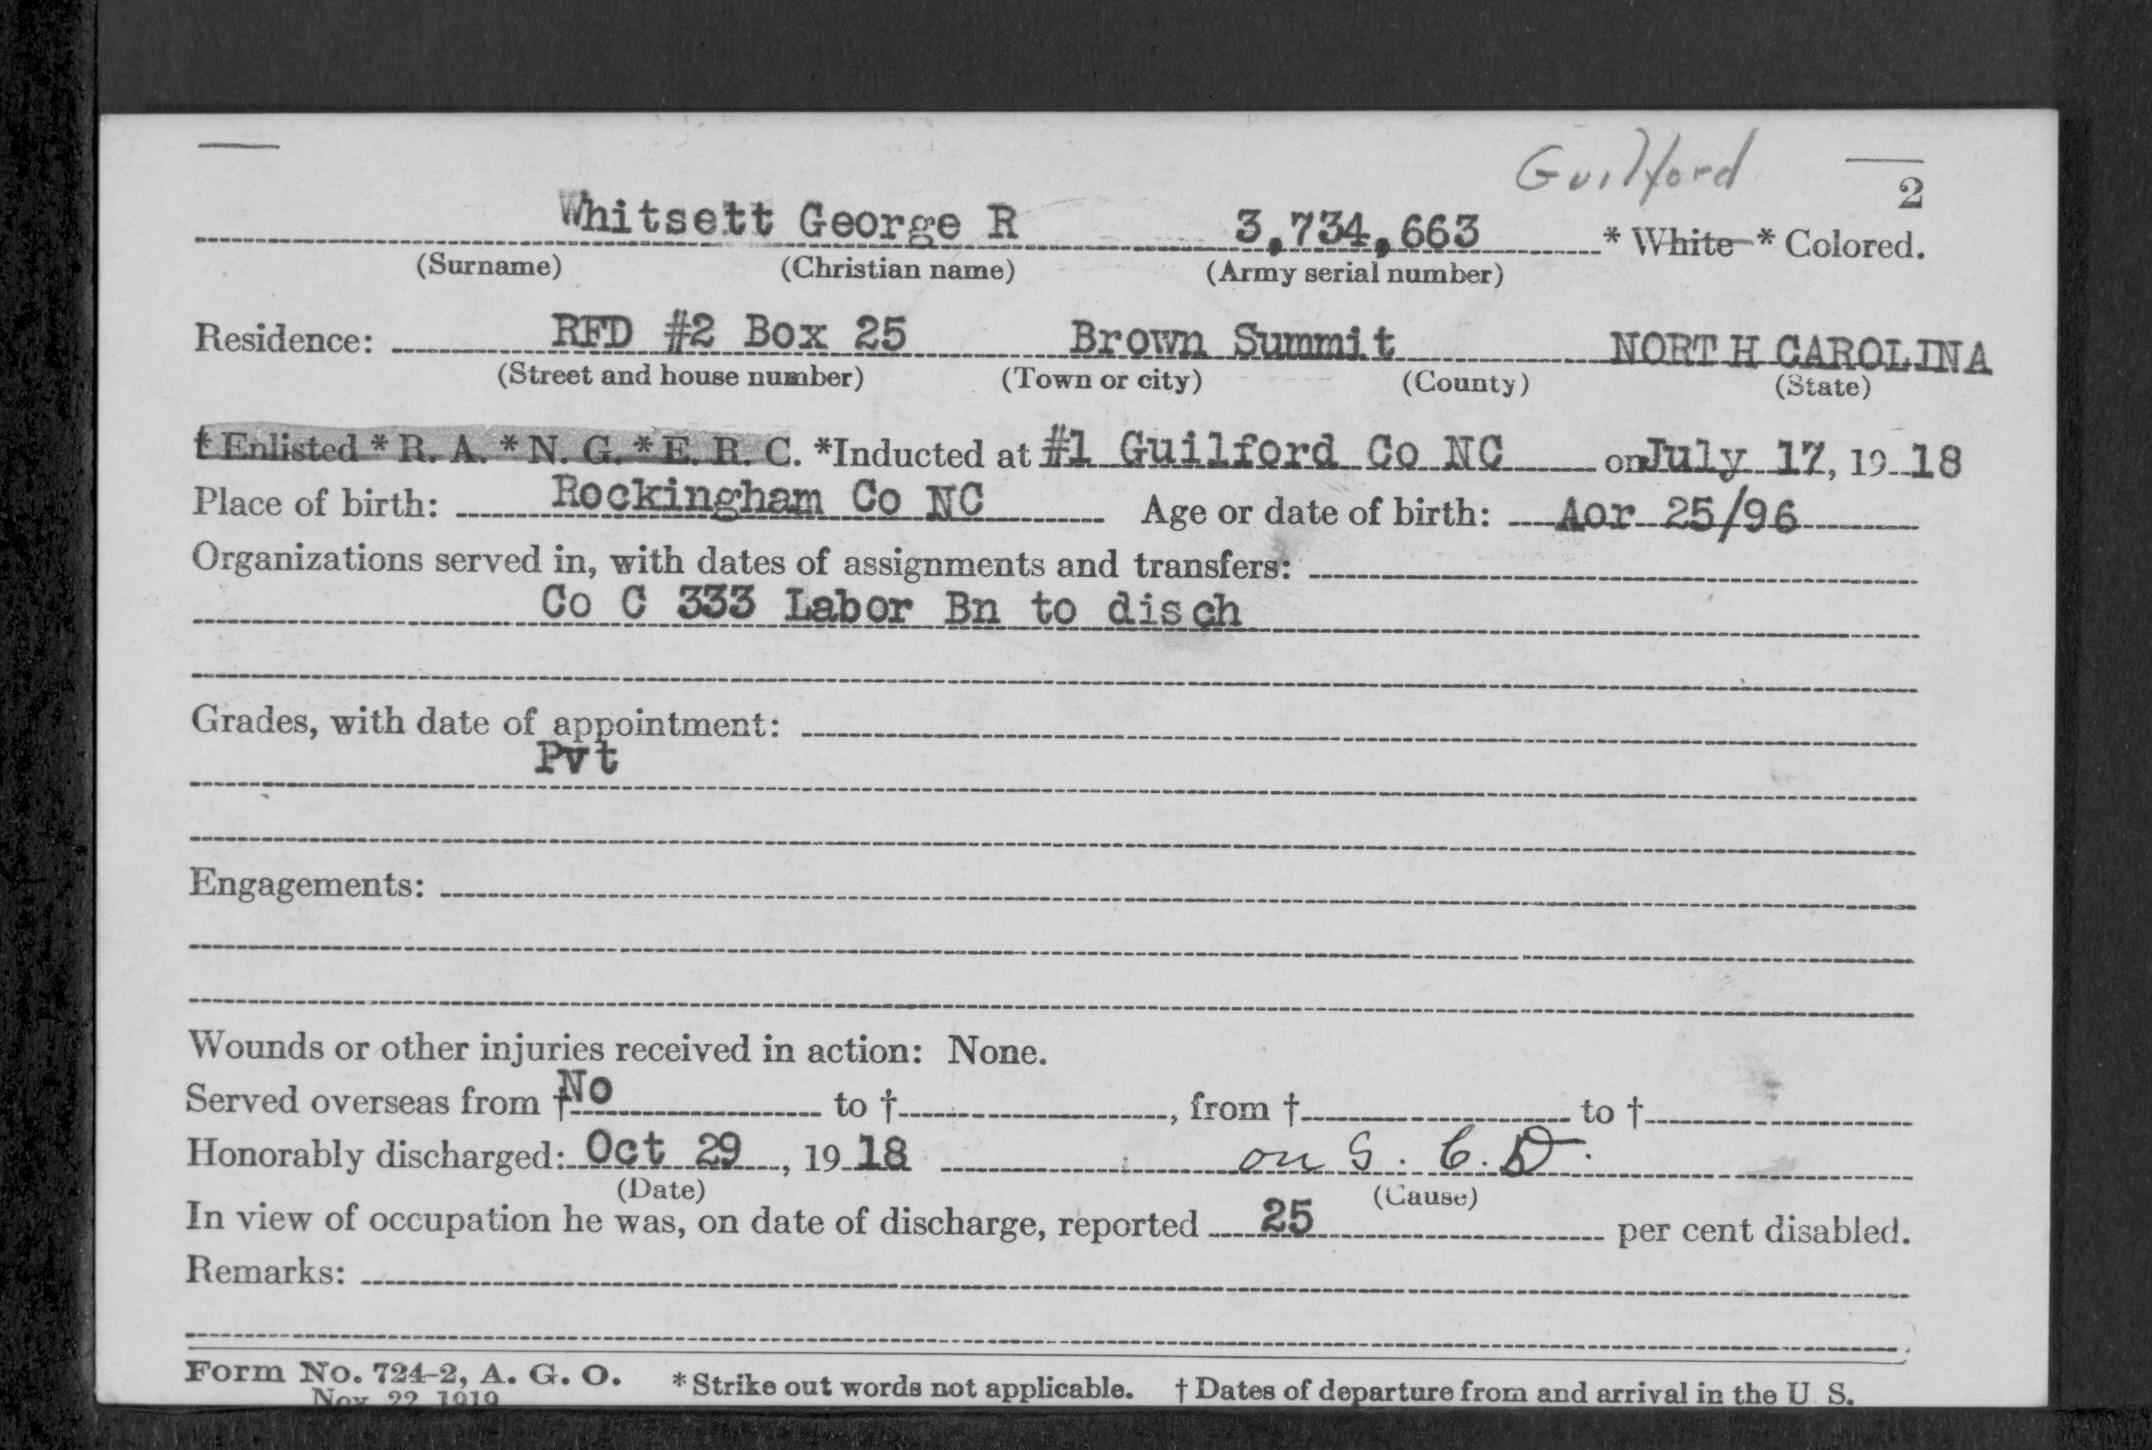 Guilford
2
Whitsett George R 3,734,663 * White * Colored.
(Surname) (Christian name) (Army serial number)
Residence: RFD #2 Box 25 Brown Summit NORTH CAROLINA
(Street and house number) (Town or city) (County) (State)
† Enlisted * R. A. * N. G. * E. R. C. *Inducted at #1 Guilford Co NC on July 17, 19 18
Place of birth: Rockingham Co NC Age or date of birth: Aor 25/96
Organizations served in, with dates of assignments and transfers:
Co C 333 Labor Bn to disch
Grades, with date of appointment:
Pvt
Engagements:
Wounds or other injuries received in action: None.
Served overseas from † No to †, from † to †
Honorably discharged: Oct 29, 19 18 on S. C. D.
(Date) (Cause)
In view of occupation he was, on date of discharge, reported 25 per cent disabled.
Remarks:
Form No. 724-2, A. G. O. * Strike out words not applicable. † Dates of departure from and arrival in the U S.
Nov 22 1919